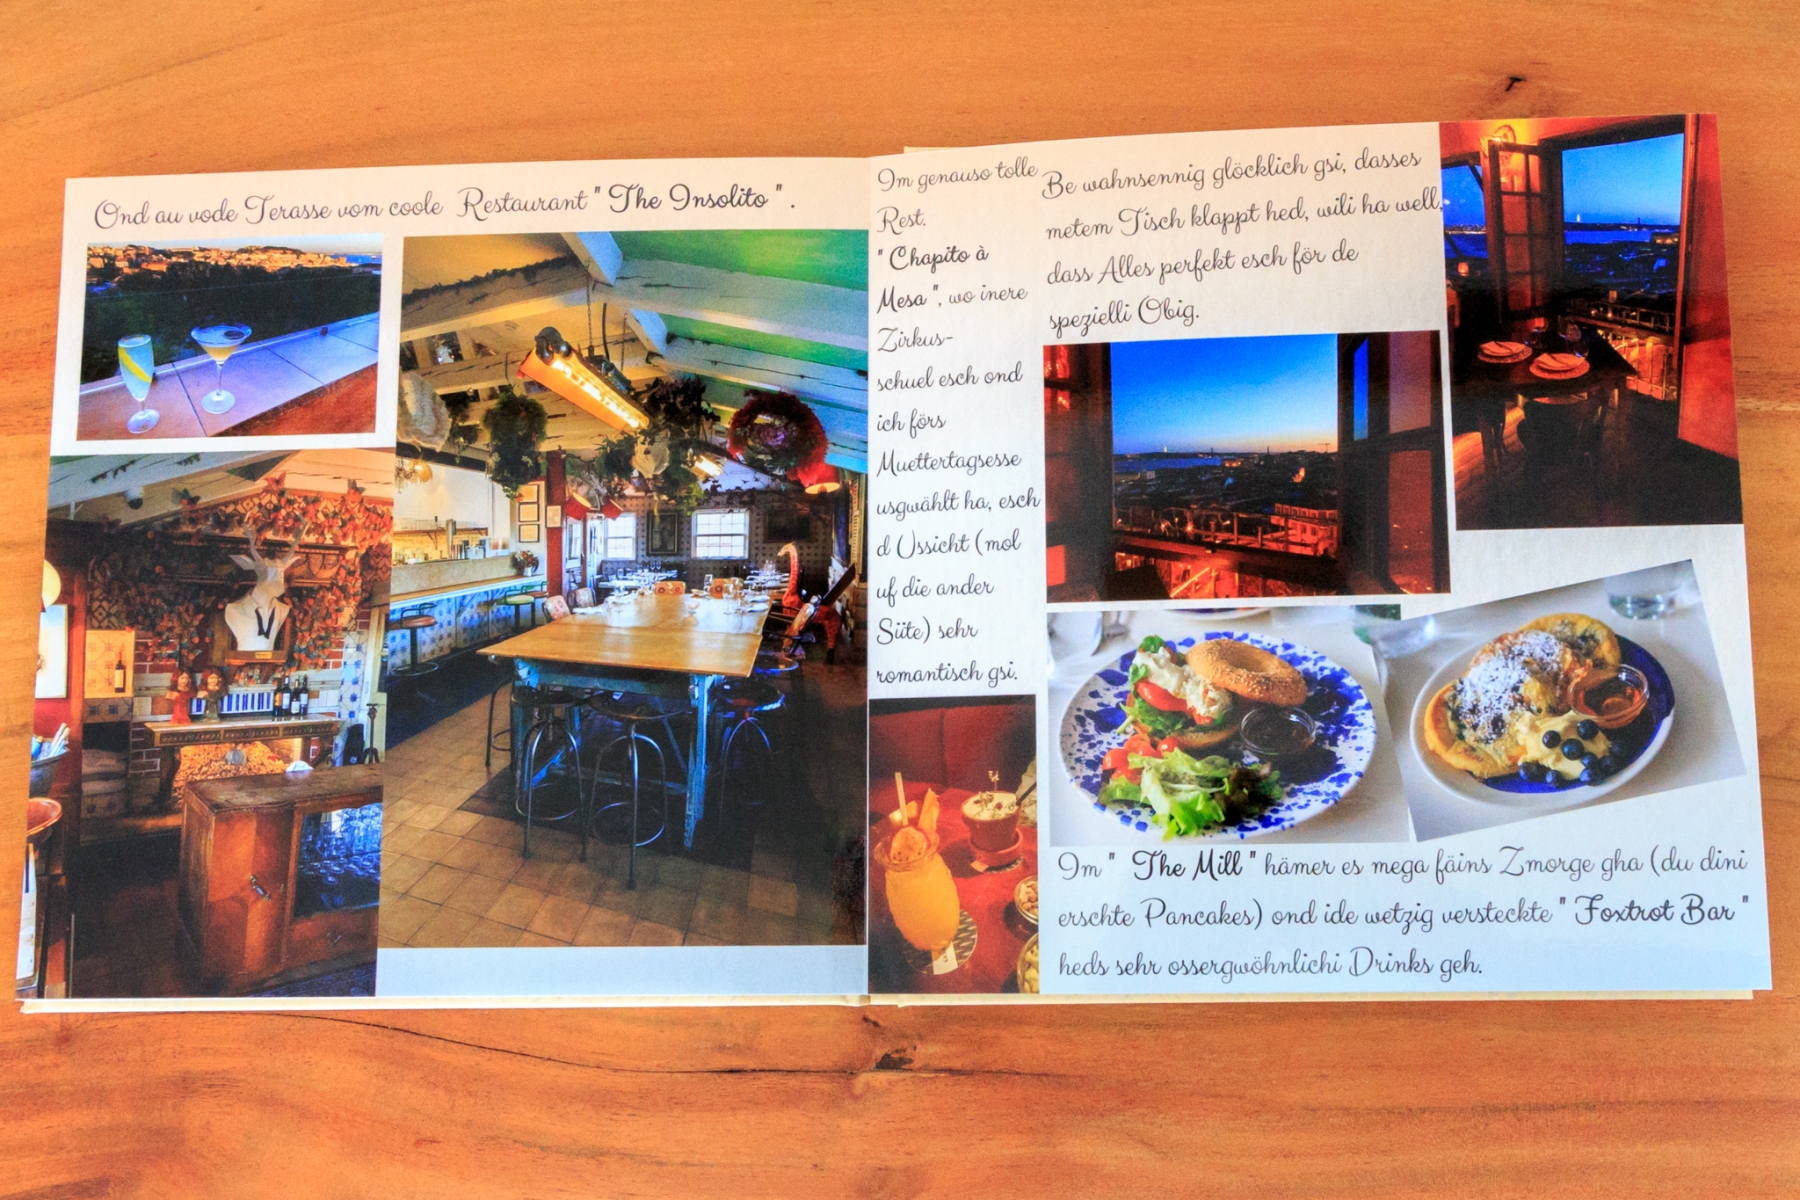 Ond au vode Terasse vom coole Restaurant " The Insolito ".
Im genauso tolle
Rest.
" Chapito à
Mesa ", wo inere
Zirkus-
schuel esch ond
ich förs
Muettertagsesse
usgwählt ha, esch
d Ussicht (mol
uf die ander
Siite) sehr
romantisch gsi.
Be wahnsennig glöcklich gsi, dasses
metem Tisch klappt hed, wili ha well,
dass Alles perfekt esch för de
spezielli Obig.
Im " The Mill " hämer es mega fäins Zmorge gha (du dini
erschte Pancakes) ond ide wetzig versteckte " Foxtrot Bar "
heds sehr ossergwöhnlichi Drinks geh.